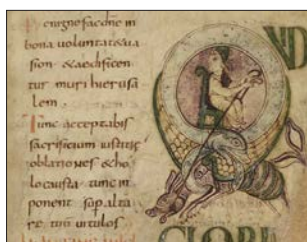 benigne fac dñe in
bona uoluntate tua
sion & aedificen
tur muri hierusa
lem.
Tunc acceptabis
sacrificium iustitiae
oblationes & ho
locausta tunc in
ponent sup alta
re tuū uitulos
UD
GLORE